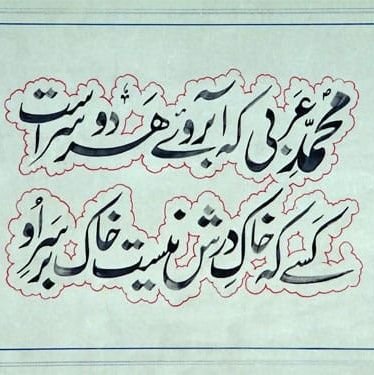 محمدؐ عربی که آبروئے هر دو سرا است
کسے که خاکِ درش نیست خاک بر سرِ اُو